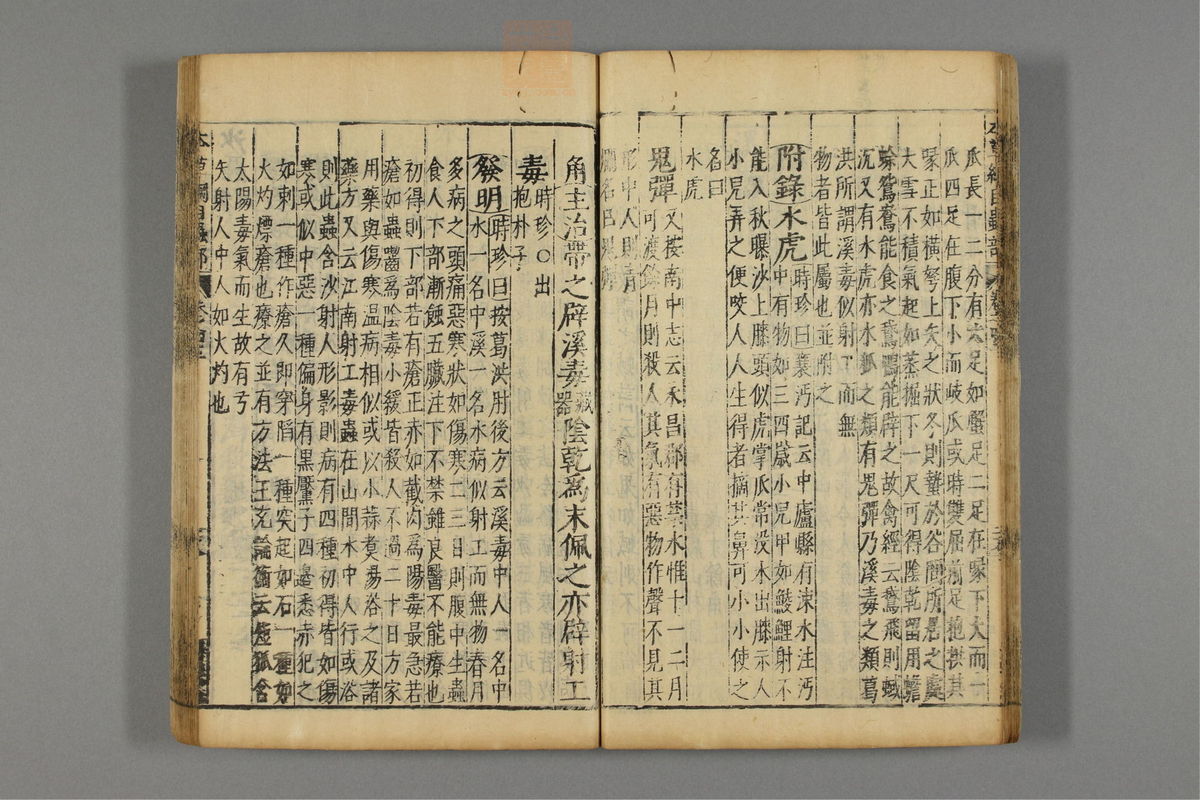 爪長一二分有六足如蟹足二足在喙下大而一
爪四足在腹下小而岐爪或時雙屈前足抱拱其
喙正如橫弩上矢之狀冬則蟄於谷間所居之處
大雪不積氣起如蒸掘下一尺可得陰乾留用蟾
蜍鴛鴦能食之鵞鴨能辟之故禽經云鵞飛則蜮
沉又有水虎亦水狐之類有鬼彈乃溪毒之類葛
洪所謂溪毒似射工而無
物者皆此屬也並附之
附錄水虎時珍曰襄沔記云中廬縣有涑水注沔
中有物如三四歲小兒甲如鯪鯉射不
能入秋曝沙上膝頭似虎掌爪常没水出膝示人
小兒弄之便咬人人生得者摘其鼻可小小使之
名曰
水虎
鬼彈又按南中志云永昌郡有禁水惟十一二月
可渡餘月則殺人其氣有惡物作聲不見其
形中人則青
爛名曰鬼彈
角主治帶之辟溪毒藏器陰乾爲末佩之亦辟射工
毒時珍○出
抱朴子
發明時珍曰按葛洪肘後方云溪毒中人一名中
水一名中溪一名水病似射工而無物春月
多病之頭痛惡寒狀如傷寒二三日則腹中生蟲
食人下部漸蝕五臟注下不禁雖良醫不能療也
初得則下部若有瘡正赤如截肉爲陽毒最急若
瘡如蟲齧爲陰毒小緩皆殺人不過二十日方家
用藥與傷寒温病相似或以小蒜煑湯浴之及諸
藥方又云江南射工毒蟲在山間水中人行或浴
則此蟲含沙射人形影則病有四種初得皆如傷
寒或似中惡一種偏身有黑黶子四邊悉赤犯之
如刺一種作瘡久即穿䧟一種突起如石一種如
火灼熛瘡也療之並有方法王充論衡云短狐含
太陽毒氣而生故有弓
矢射人中人如火灼也